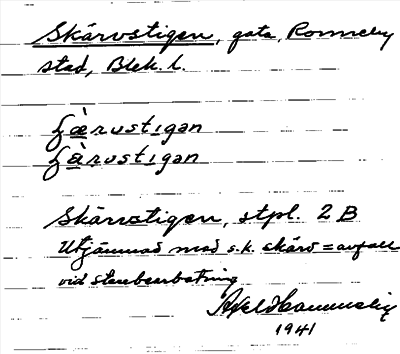 Skärvstigen, gata, Ronneby
stad, Blek. l.
ʃæ̀rvstıgan
ʃàrvstıgan
Skärvstigen, stpl. 2 B
Utjämnad med s.k. skärv = avfall
vid stenbearbetning
Axel
1941